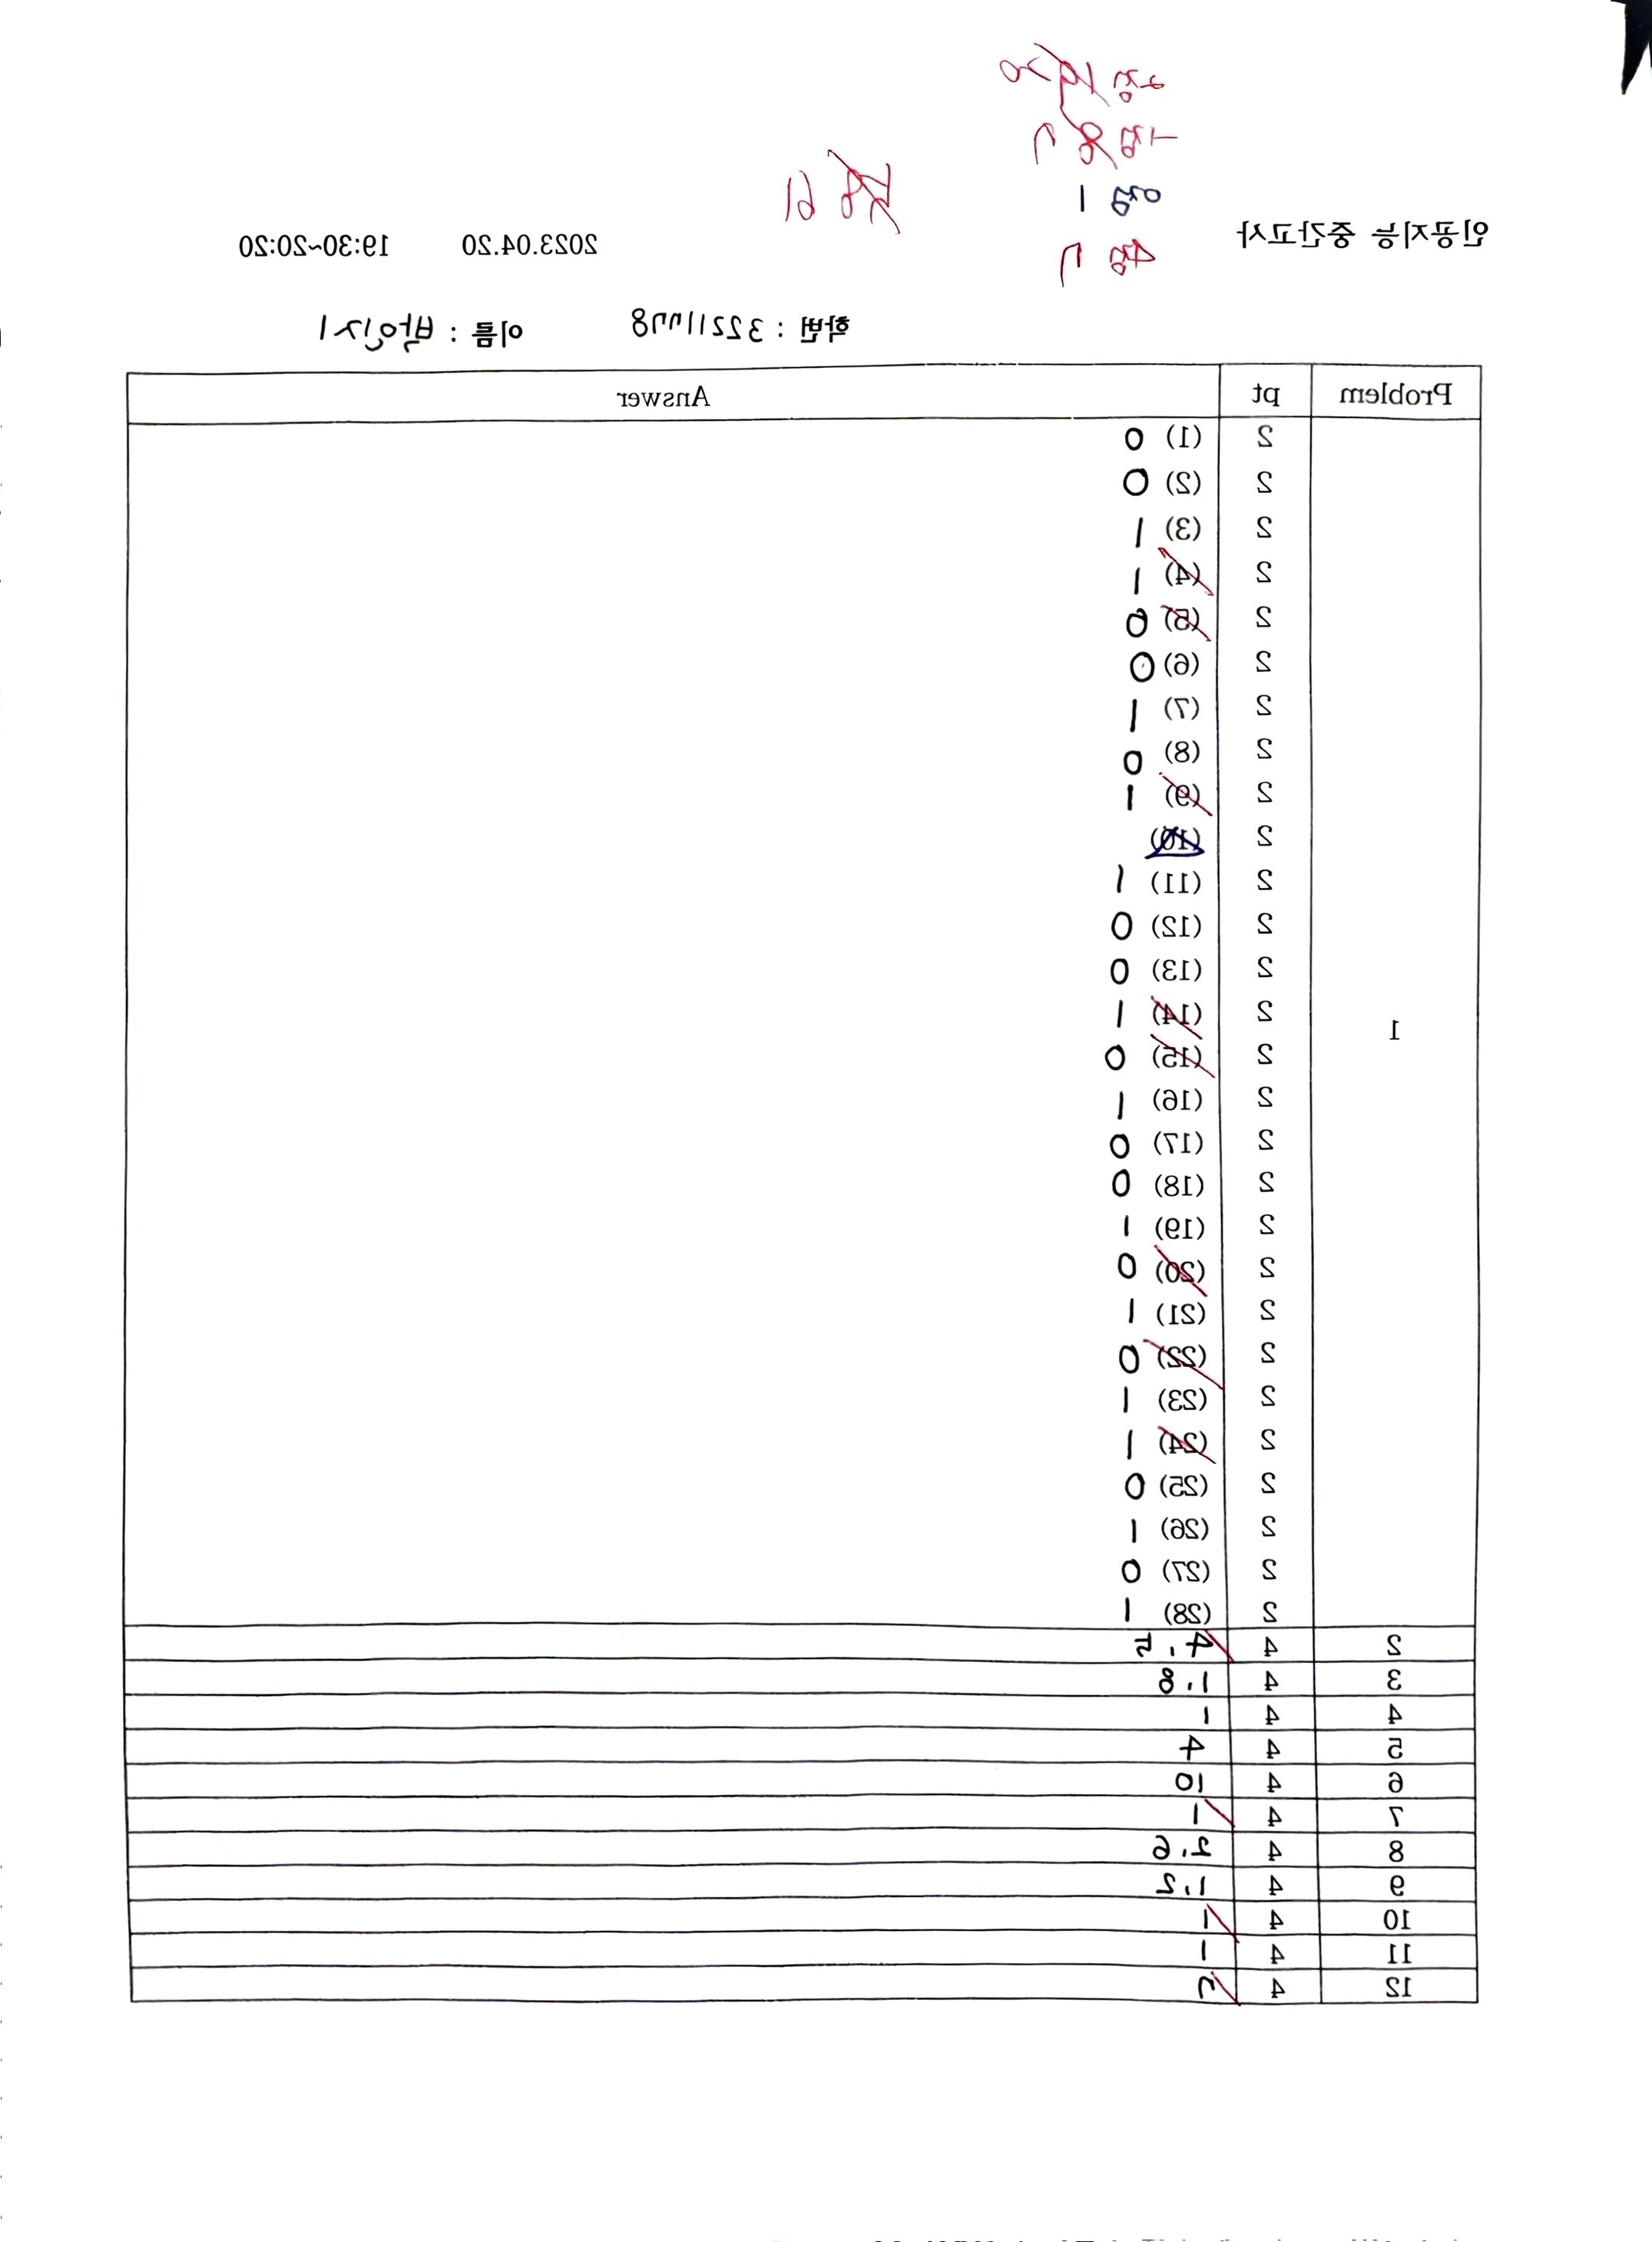 인공지능 중간고사
2023.04.20 19:30~20:20
학번 : 32211778 이름 : 박인지
Problem pt Answer
1
2 (1) 0
2 (2) 0
2 (3) 1
2 (4) 1
2 (5) 0
2 (6) 0
2 (7) 1
2 (8) 0
2 (9) 1
2 (10)
2 (11) 1
2 (12) 0
2 (13) 0
2 (14) 1
2 (15) 0
2 (16) 1
2 (17) 0
2 (18) 0
2 (19) 1
2 (20) 0
2 (21) 1
2 (22) 0
2 (23) 1
2 (24) 1
2 (25) 0
2 (26) 1
2 (27) 0
2 (28) 1
2 4 4, 5
3 4 1, 8
4 4 1
5 4 4
6 4 10
7 4 1
8 4 2, 6
9 4 1, 2
10 4 1
11 4 1
12 4 7